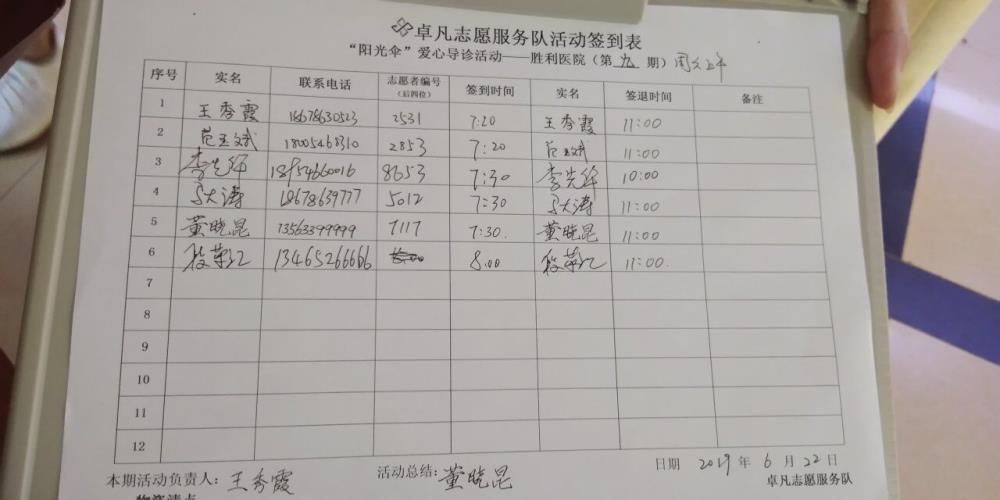 卓凡志愿服务队活动签到表
“阳光伞”爱心导诊活动——胜利医院（第 九 期）周六上午
序号 实名 联系电话 志愿者编号（后四位） 签到时间 实名 签退时间 备注
1 王秀霞 18678630523 2531 7:20 王秀霞 11:00
2 范玉斌 18005468310 2853 7:20 范玉斌 11:00
3 李先华 18954660016 8653 7:30 李先华 10:00
4 马大涛 18678639777 5012 7:30 马大涛 11:00
5 董晓昆 13563399999 7117 7:30. 董晓昆 11:00
6 段荣江 13465266666 8.00 段荣江 11:00.
7
8
9
10
11
12
本期活动负责人：王秀霞 活动总结：董晓昆 日期 2019 年 6 月 22 日
卓凡志愿服务队